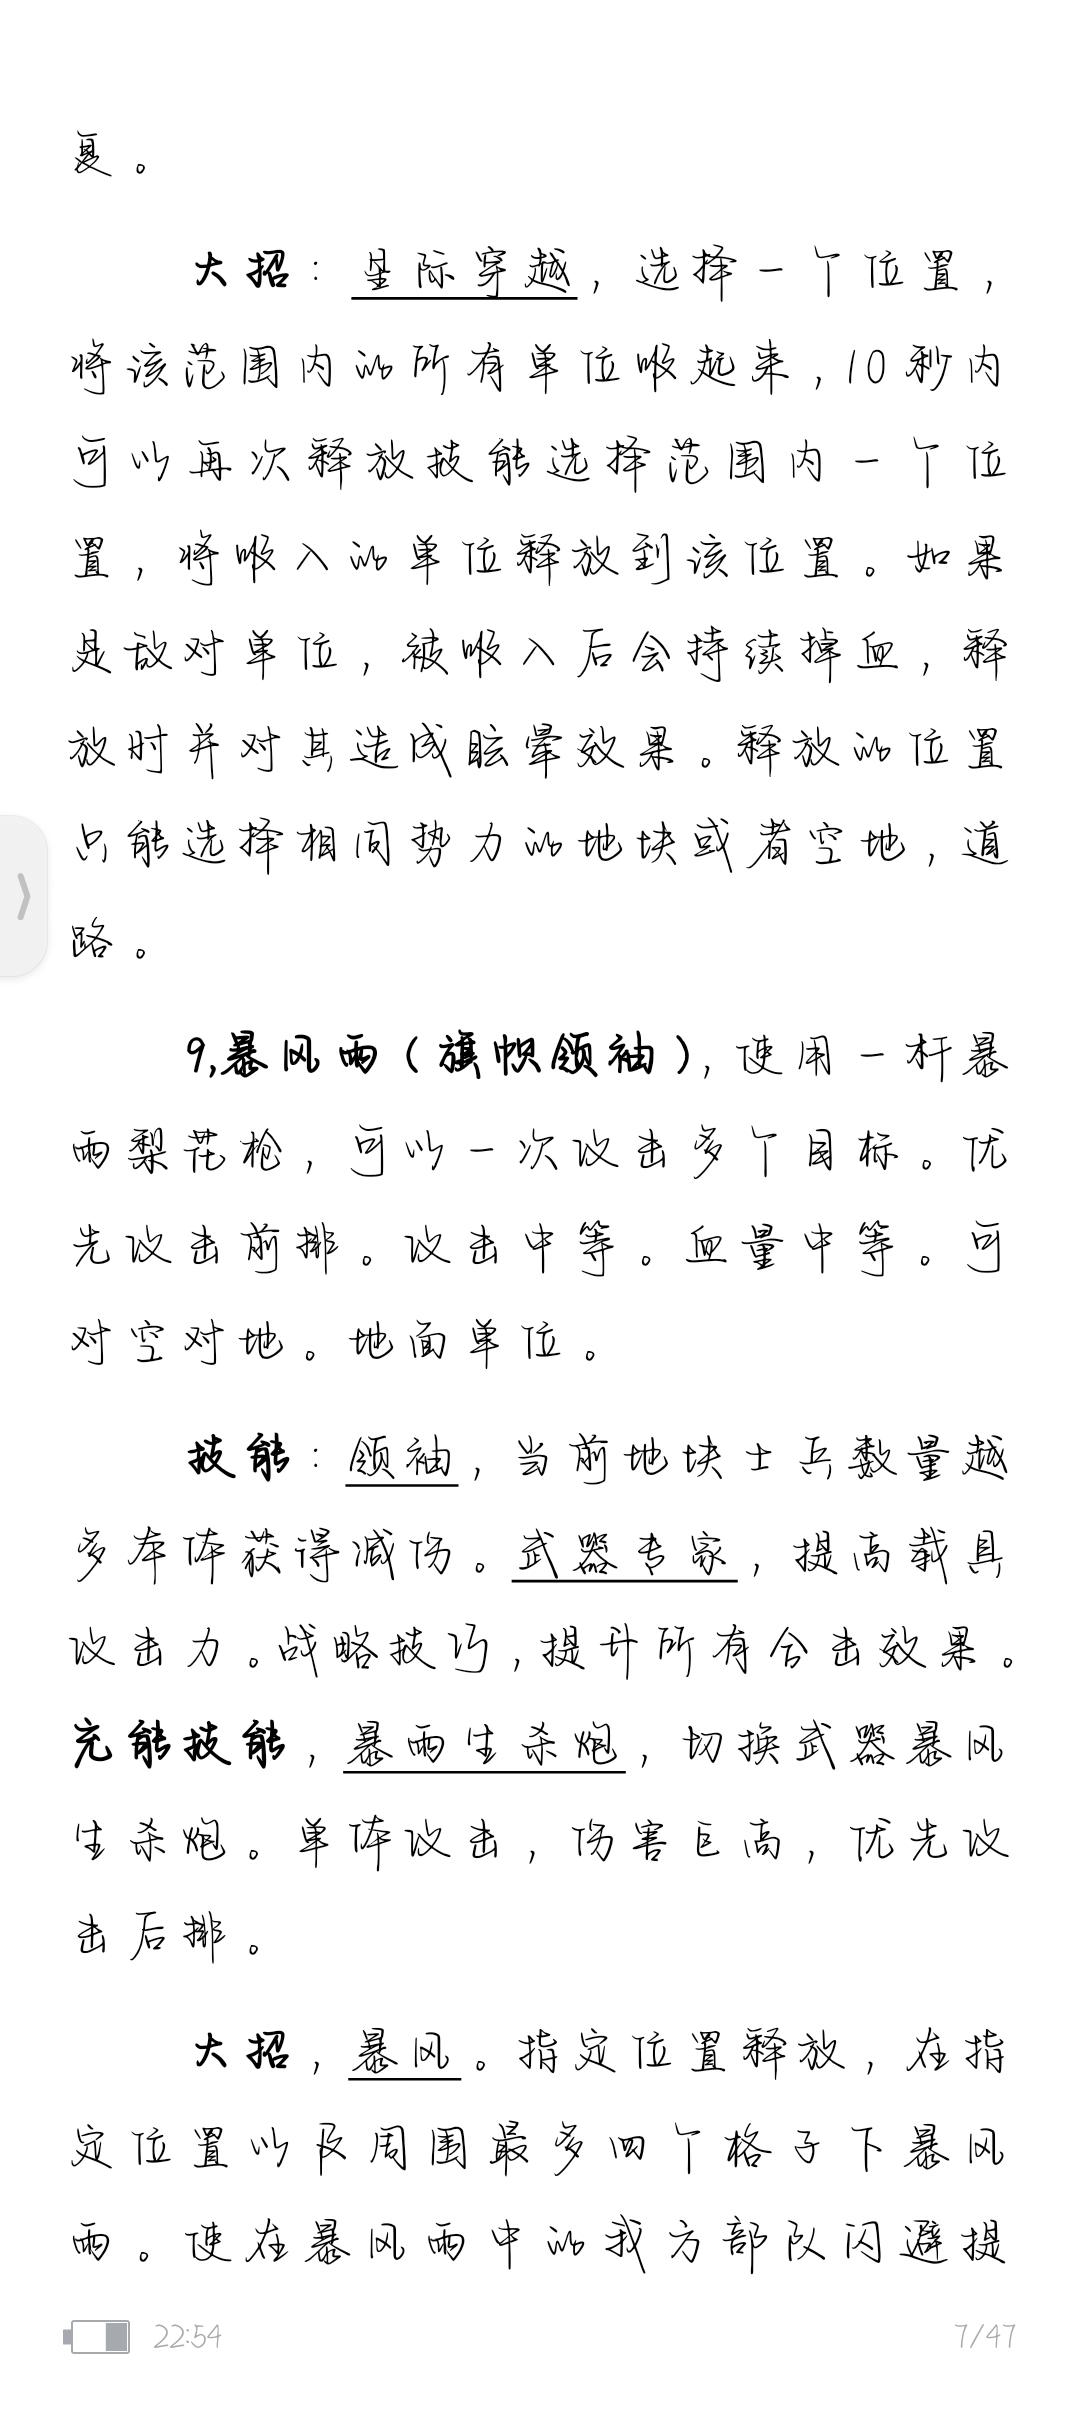 复。
大招：星际穿越，选择一个位置，
将该范围内的所有单位吸起来，10秒内
可以再次释放技能选择范围内一个位
置，将吸入的单位释放到该位置。如果
是敌对单位，被吸入后会持续掉血，释
放时并对其造成眩晕效果。释放的位置
只能选择相同势力的地块或者空地，道
路。
9,暴风雨（旗帜领袖），使用一杆暴
雨梨花枪，可以一次攻击多个目标。优
先攻击前排。攻击中等。血量中等。可
对空对地。地面单位。
技能：领袖，当前地块士兵数量越
多本体获得减伤。武器专家，提高载具
攻击力。战略技巧，提升所有合击效果。
充能技能，暴雨生杀炮，切换武器暴风
生杀炮。单体攻击，伤害巨高，优先攻
击后排。
大招，暴风。指定位置释放，在指
定位置以及周围最多四个格子下暴风
雨。使在暴风雨中的我方部队闪避提
22:54
7/47